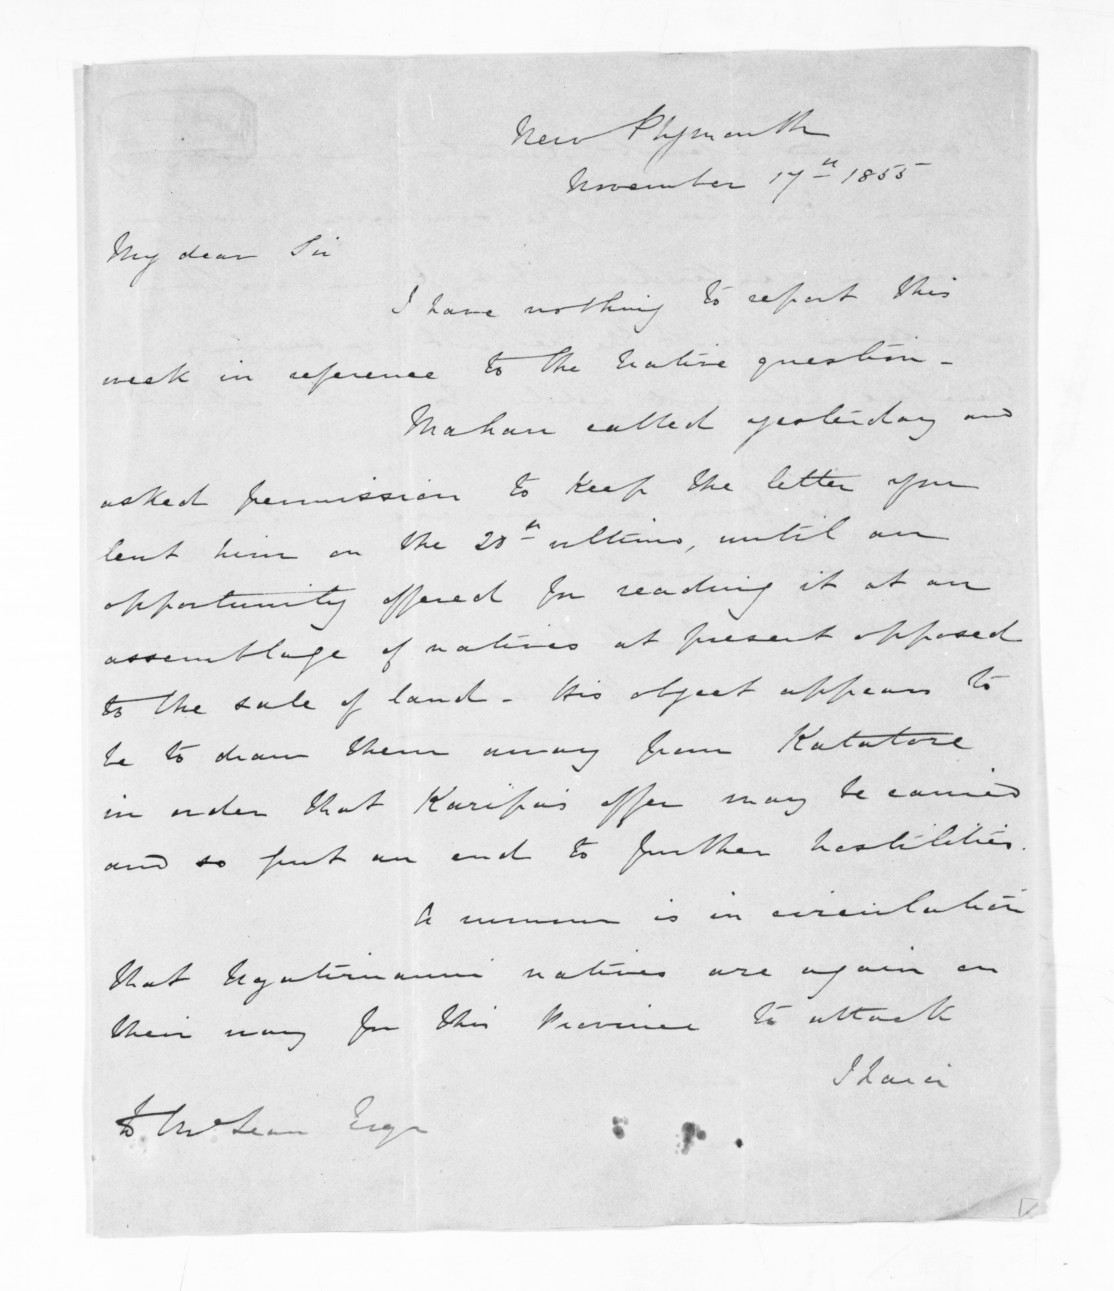 New Plymouth
November 17th 1855
My dear Sir
I have nothing to report this
week in reference to the native question -
Mahau called yesterday and
asked permission to keep the letter you
lent him on the 20th ultimo, until an
opportunity offered for reading it at an
assemblage of natives at present opposed
to the sale of land - His object appears to
be to draw them away from Katatore
in order that Karipa's offer may be carried
and so put an end to further hostilities.
A rumour is in circulation
that Ngatimaniapoto natives are again on
their way for this Province to attack
Ihaia
To McLean Esqr